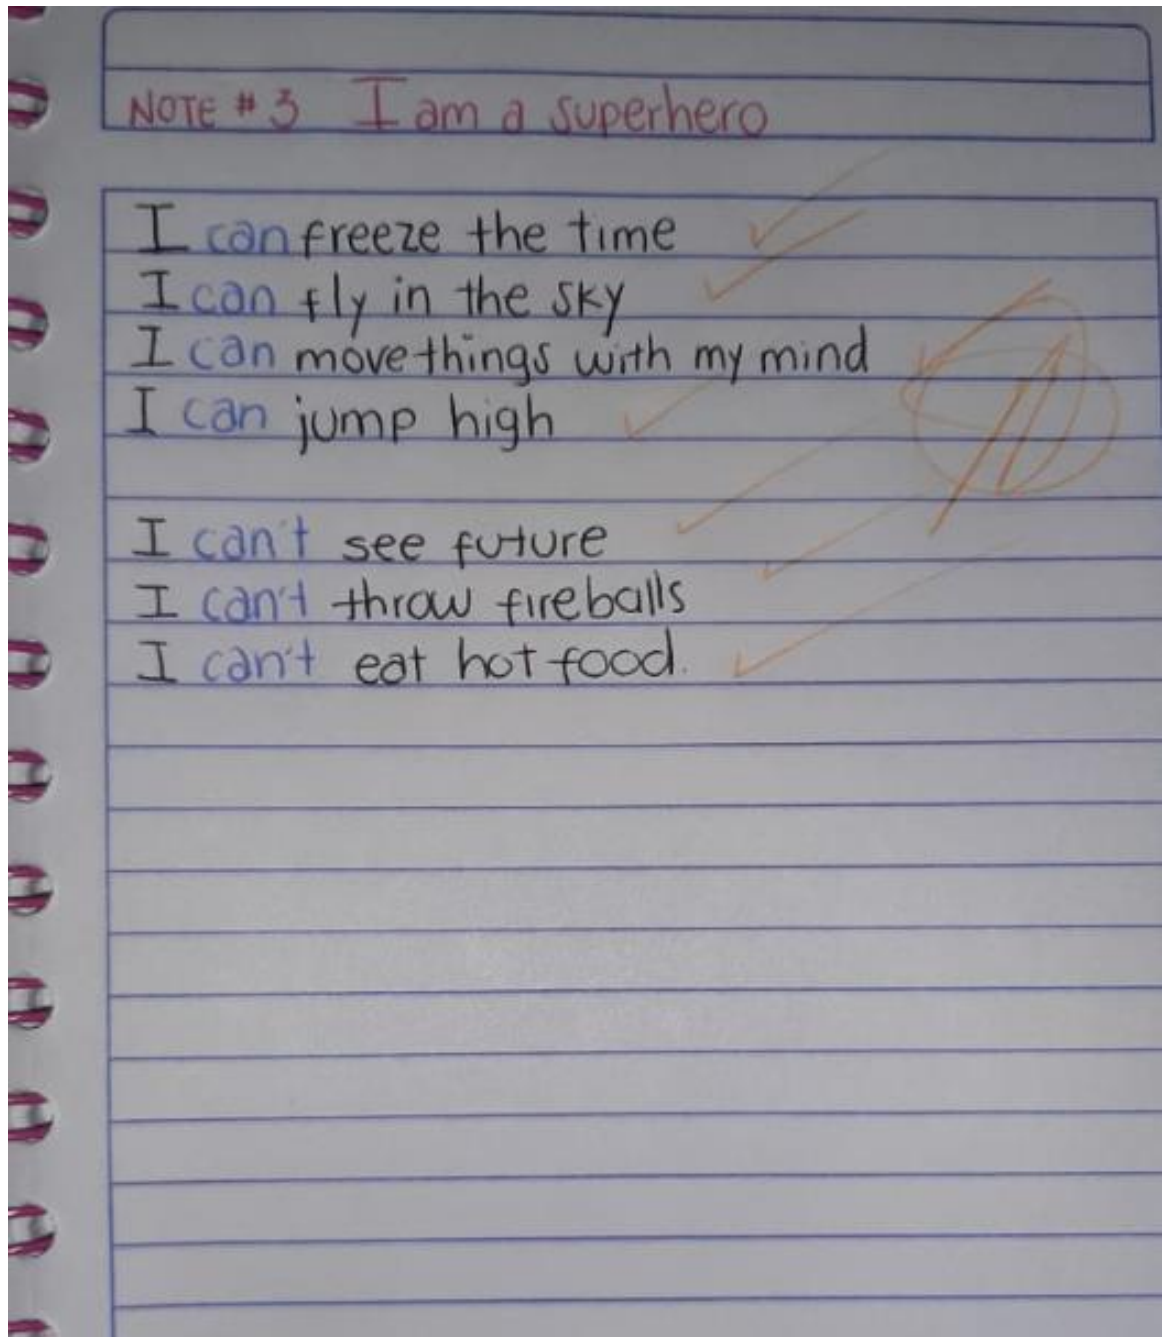 NOTE # 3 I am a superhero
I can freeze the time
I can fly in the sky
I can move things with my mind
I can jump high
I can't see future
I can't throw fireballs
I can't eat hot food.